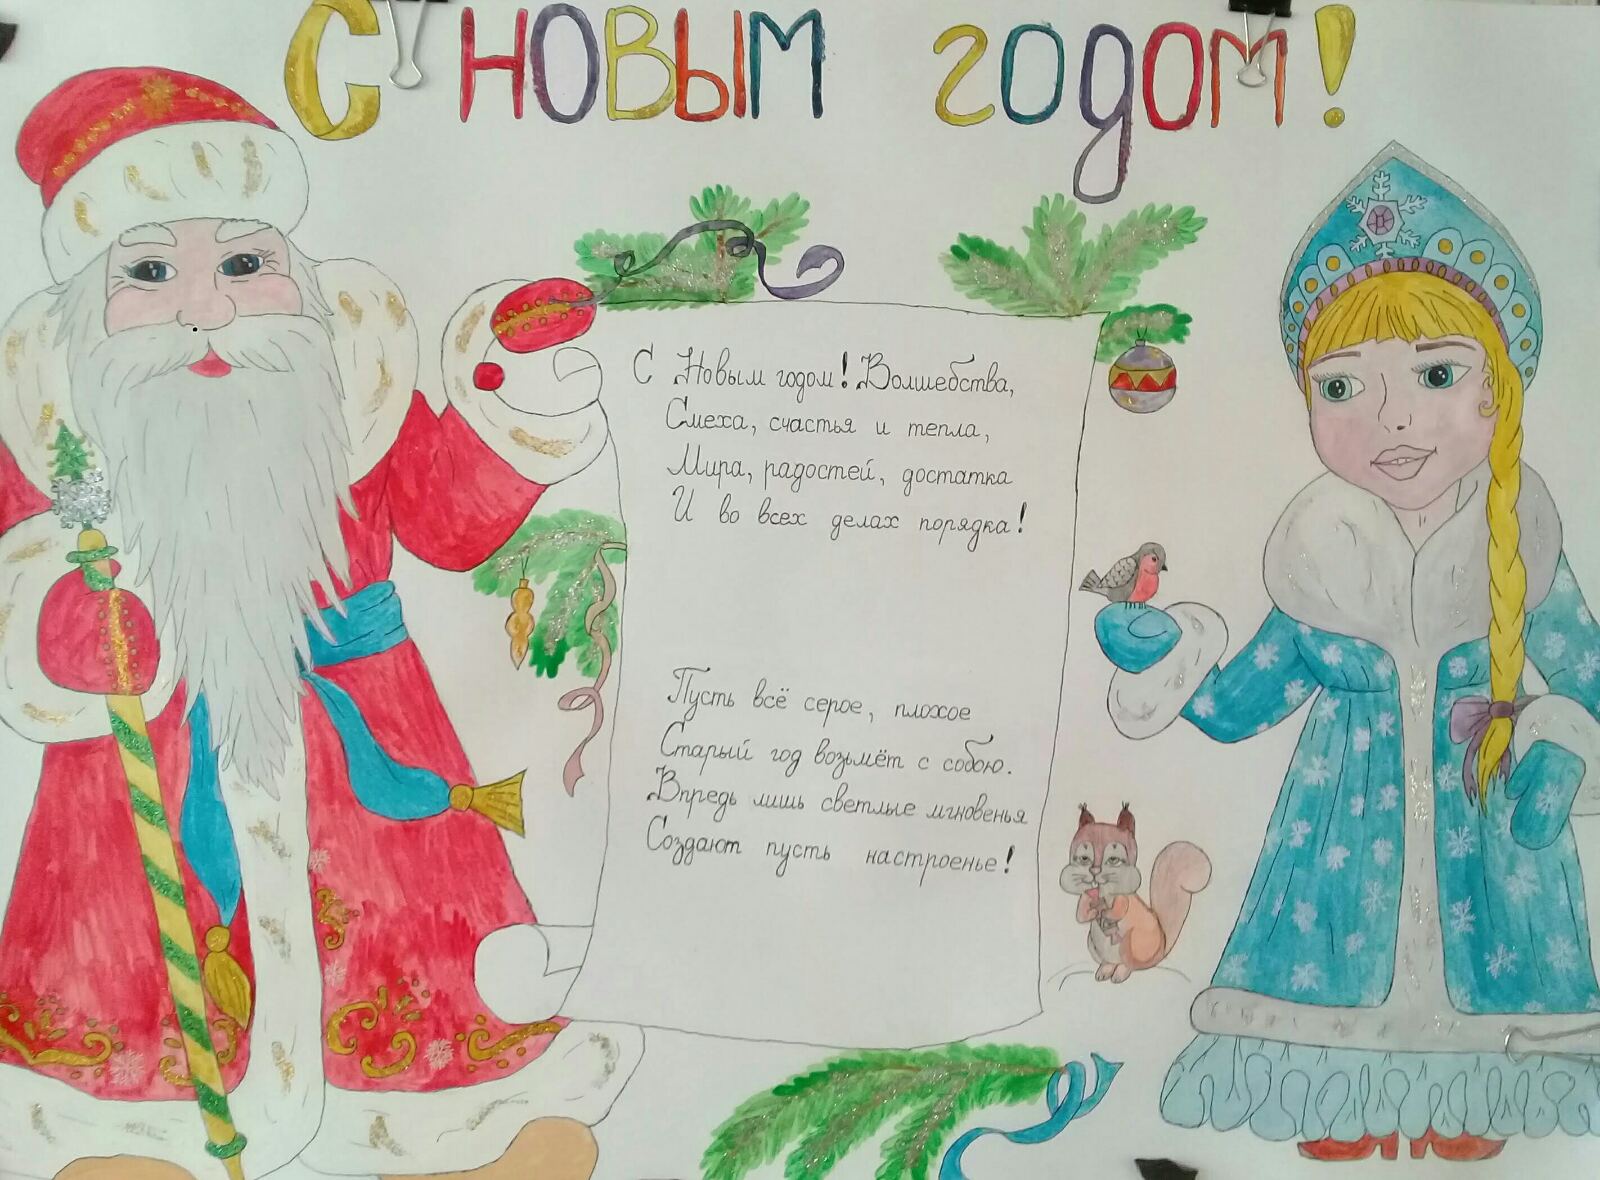 С НОВЫМ ГОДОМ!
С Новым годом! Волшебства,
Смеха, счастья и тепла,
Мира, радостей, достатка
И во всех делах порядка!
Пусть всё серое, плохое
Старый год возьмёт с собою.
Впредь лишь светлые мгновенья
Создают пусть настроенье!